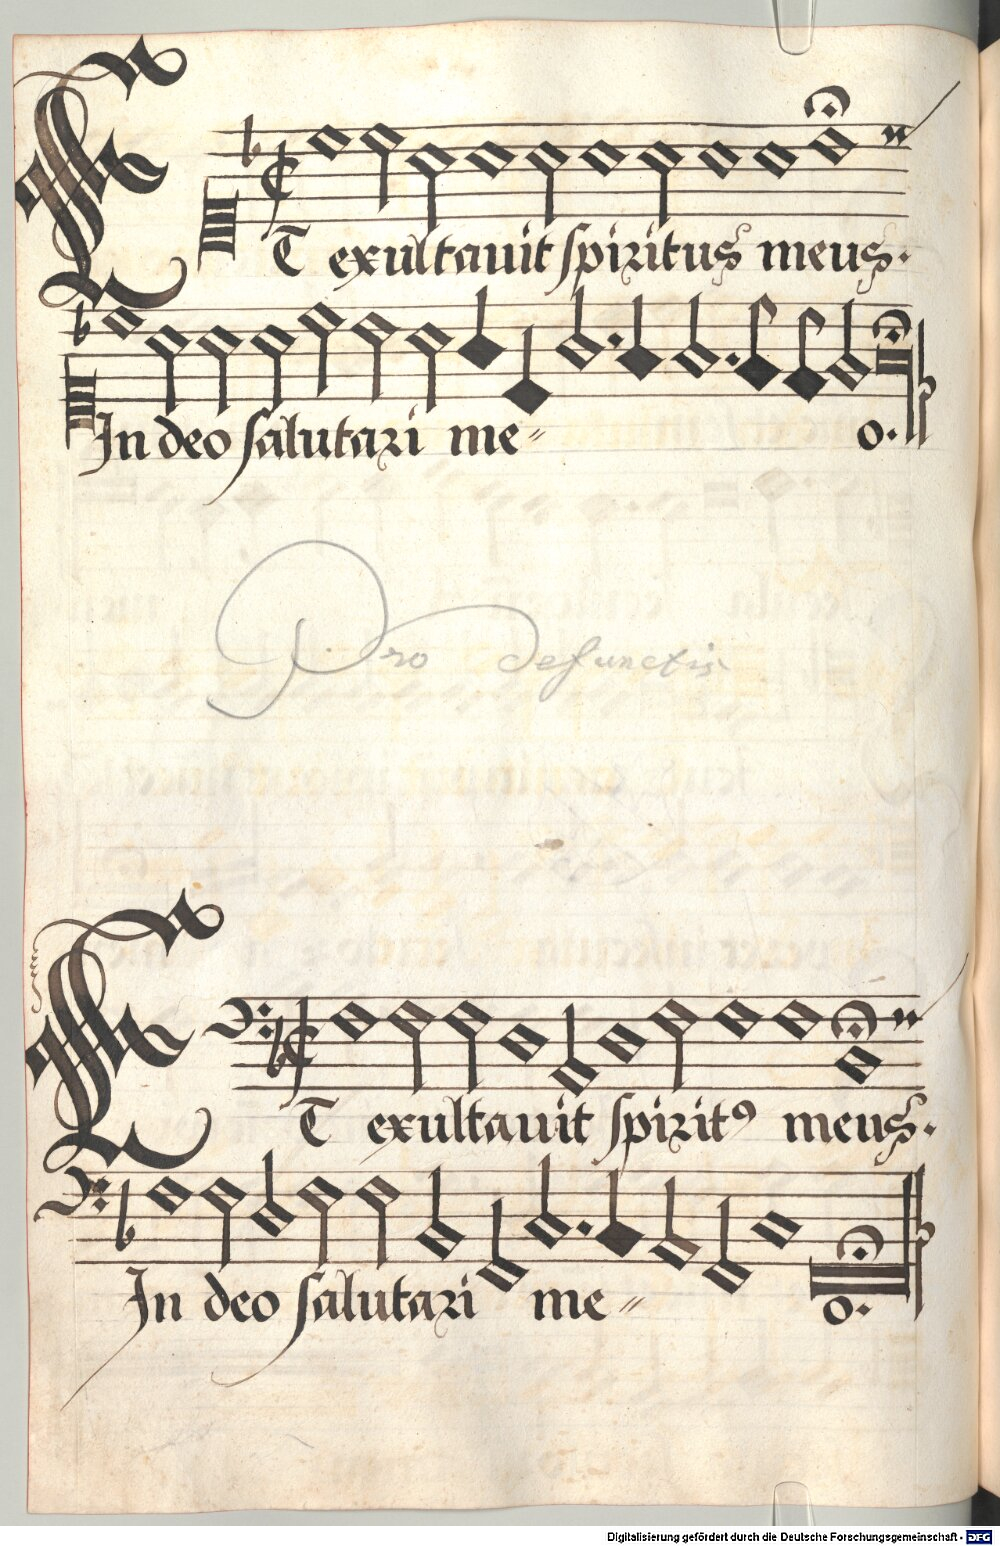 ET exultauit spiritus meus.
In deo salutari me= o.
Pro defunctis
ET exultauit spirit9 meus.
In deo salutari me= o.
Digitalisierung gefördert durch die Deutsche Forschungsgemeinschaft - DFG